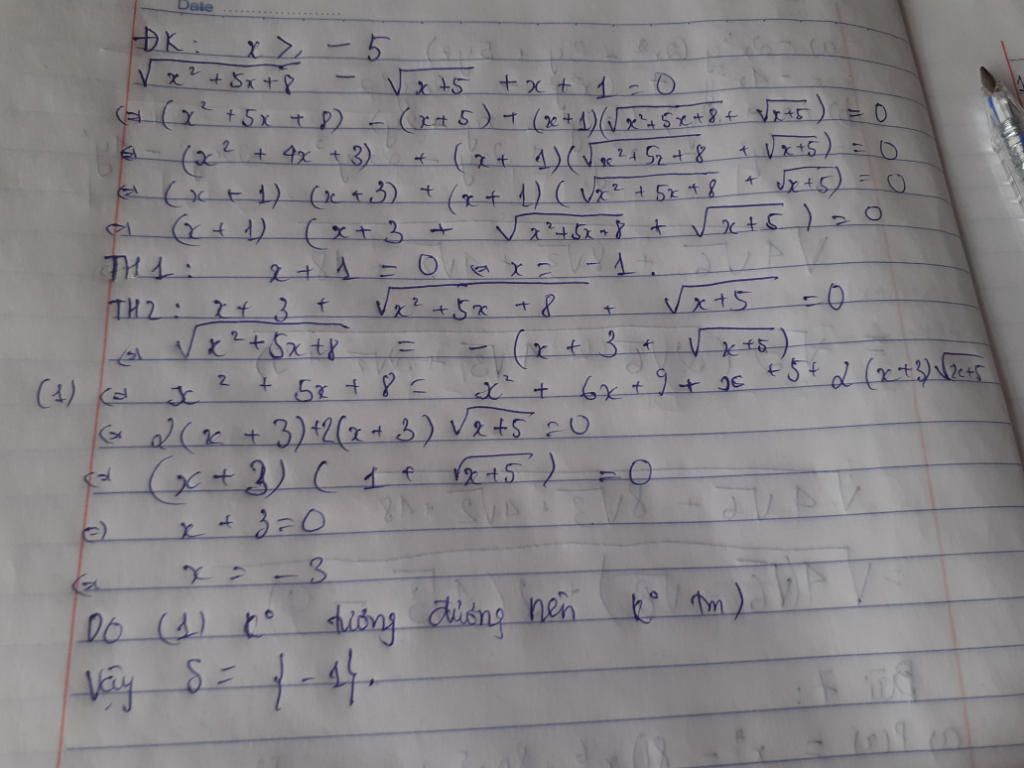 Date
ĐK: x ≥ - 5
√(x² + 5x + 8) - √(x+5) + x + 1 = 0
⇔ (x² + 5x + 8) - (x + 5) + (x+1)(√(x²+5x+8) + √(x+5)) = 0
⇔ (x² + 4x + 3) + (x + 1)(√(x²+5x+8) + √(x+5)) = 0
⇔ (x + 1) (x + 3) + (x + 1) (√(x² + 5x + 8) + √(x+5)) = 0
⇔ (x + 1) (x + 3 + √(x²+5x+8) + √(x+5)) = 0
TH1: x + 1 = 0 ⇔ x = - 1.
TH2: x + 3 + √(x² + 5x + 8) + √(x+5) = 0
⇔ √(x² + 5x + 8) = - (x + 3 + √(x+5))
(1) ⇔ x² + 5x + 8 = x² + 6x + 9 + x + 5 + 2 (x+3)√(x+5)
⇔ 2(x + 3) + 2(x + 3) √(x+5) = 0
⇔ (x + 3) (1 + √(x+5)) = 0
⇔ x + 3 = 0
⇔ x = - 3
DO (1) k° tương đương nên k° tm)
Vậy S = { - 1}.